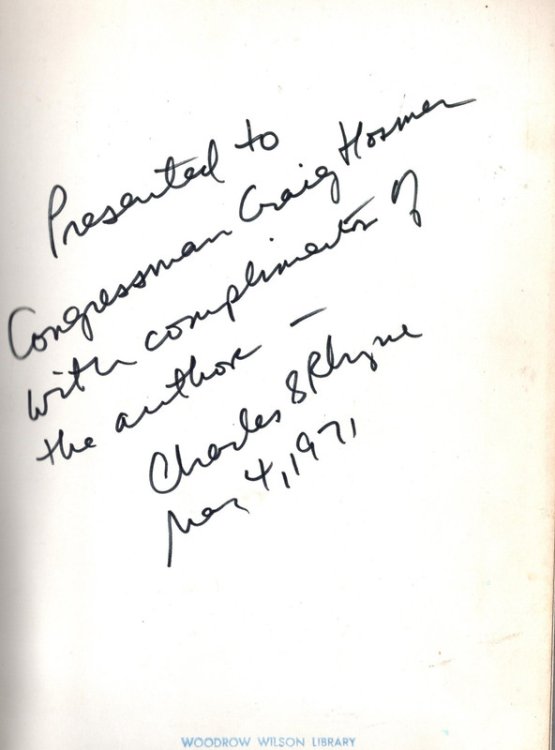 Presented to
Congressman Craig Hosmer
with compliments of
the author —
Charles S Rhyne
May 4, 1971
WOODROW WILSON LIBRARY